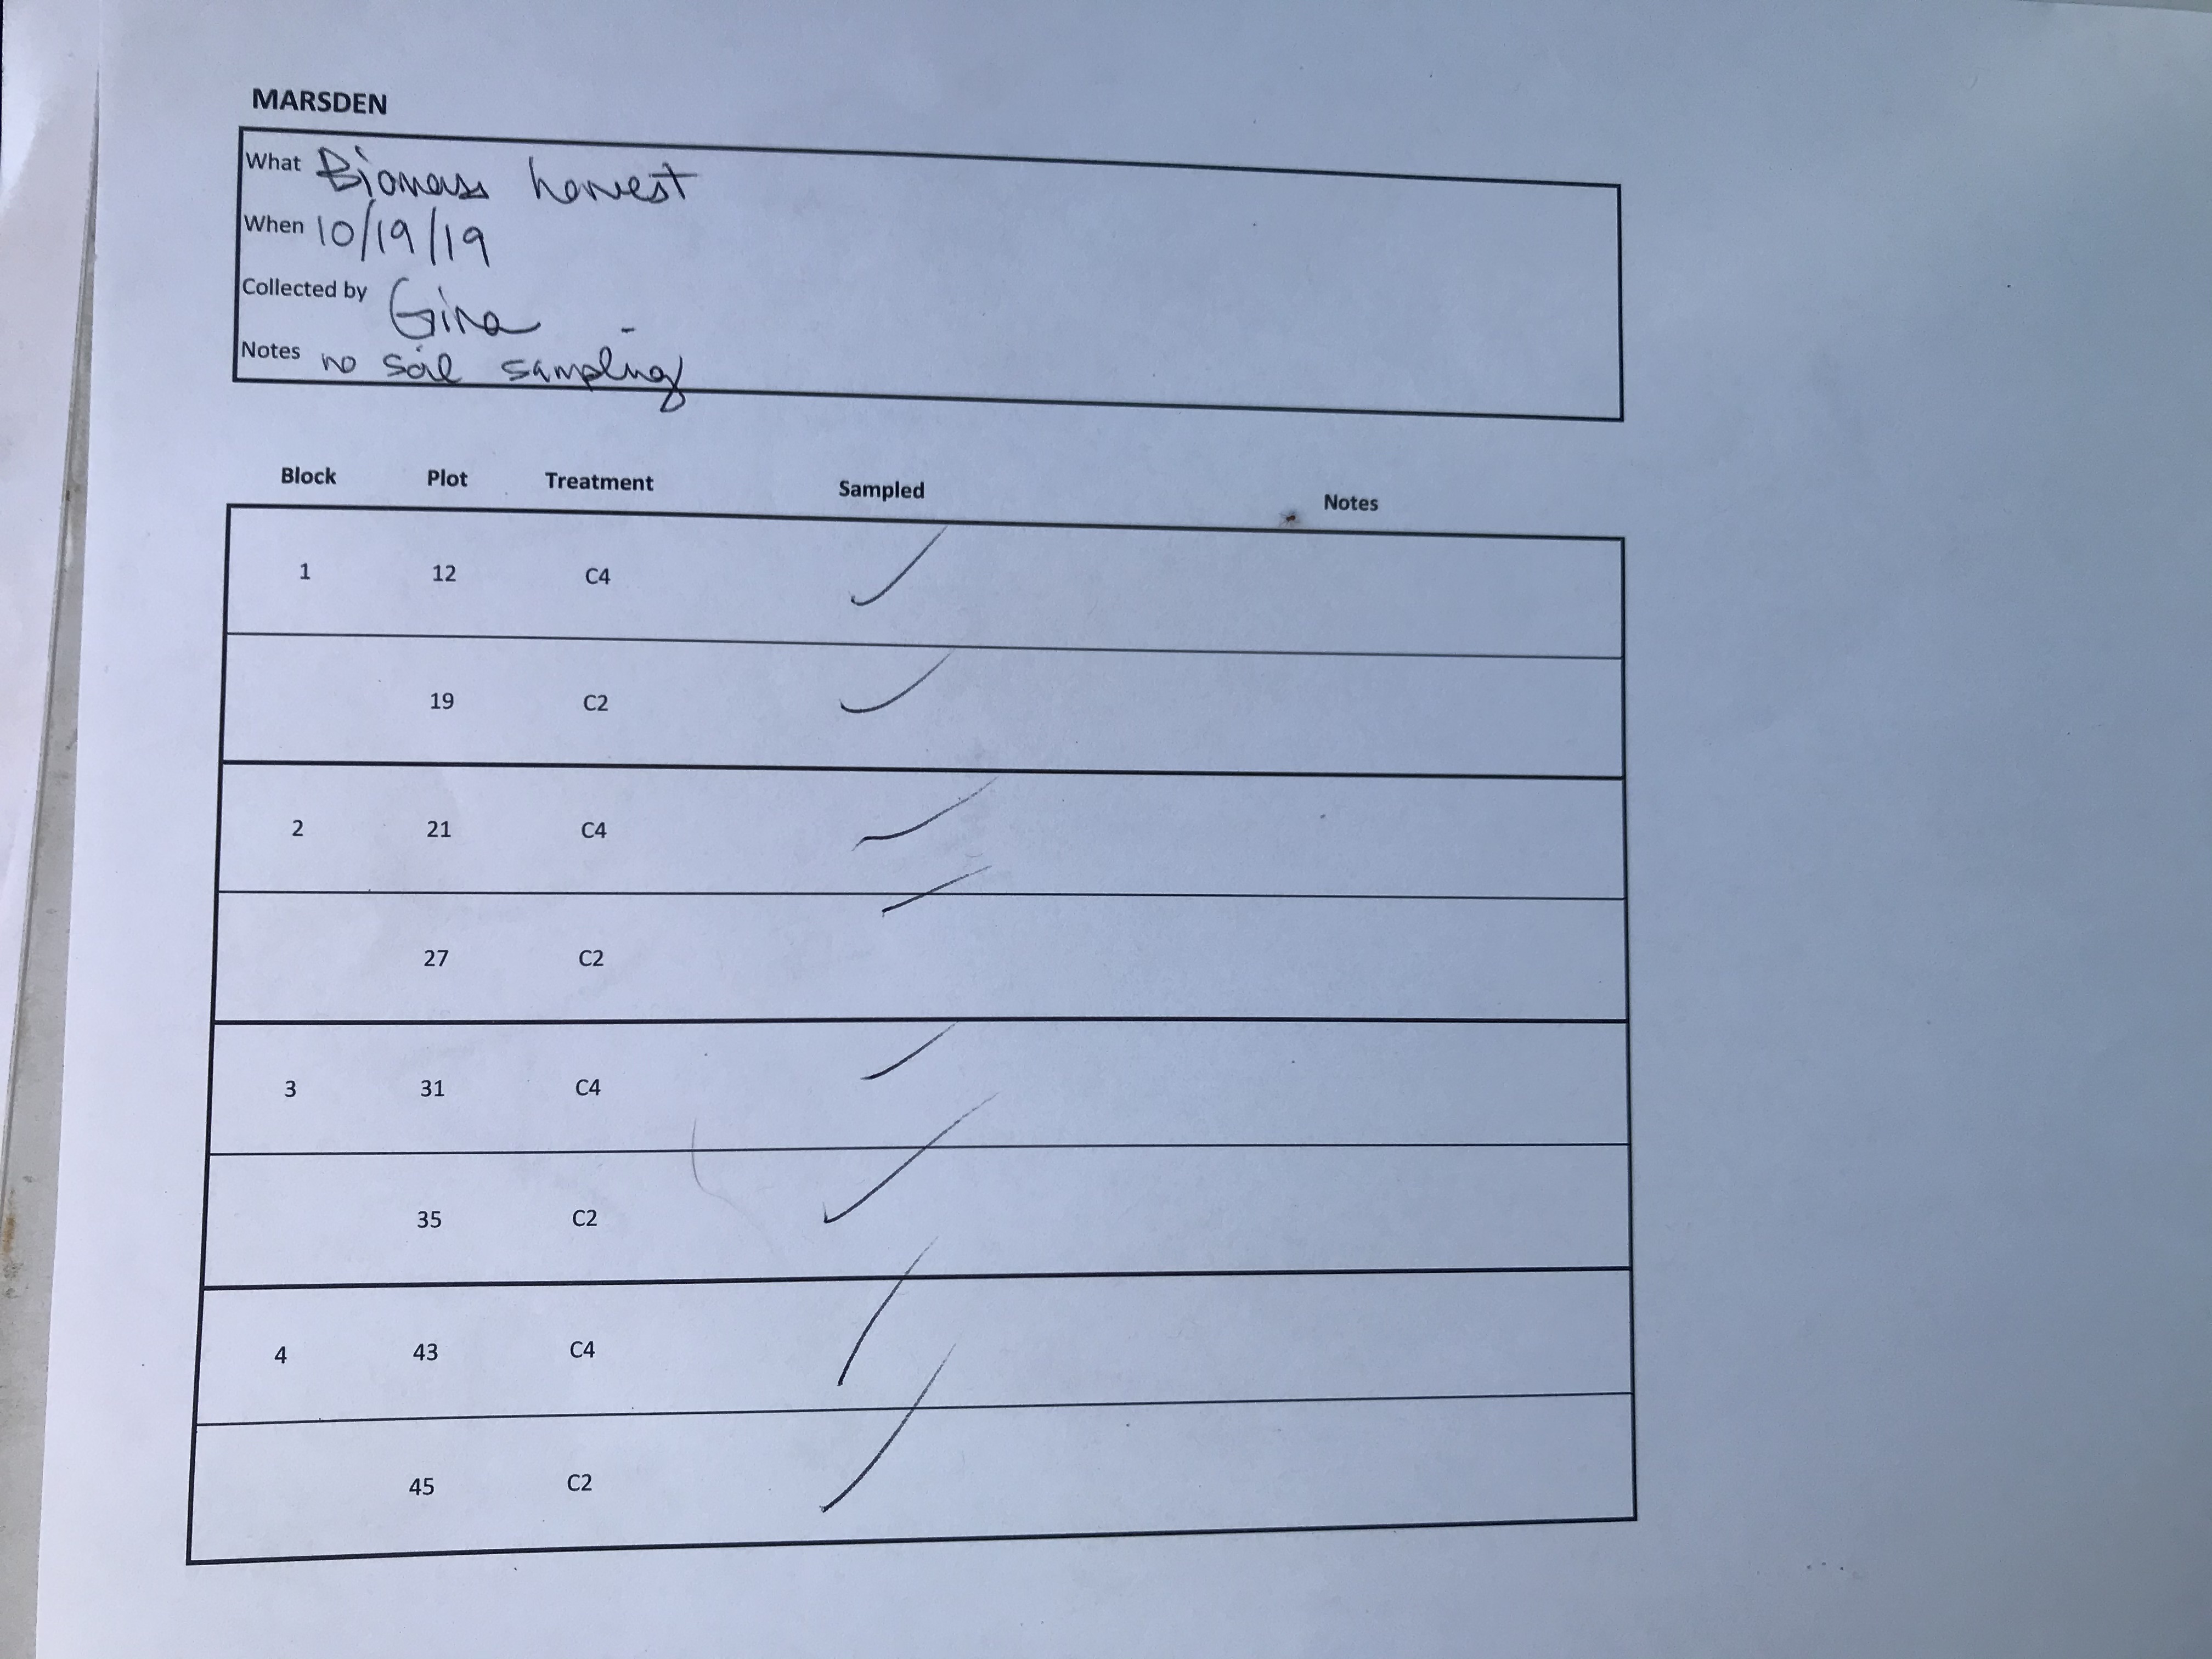 MARSDEN
What Biomass harvest
When 10/19/19
Collected by Gina
Notes no soil sampling
Block Plot Treatment Sampled Notes
1 12 C4 ✓
19 C2 ✓
2 21 C4 ✓
27 C2 ✓
3 31 C4 ✓
35 C2 ✓
4 43 C4 ✓
45 C2 ✓